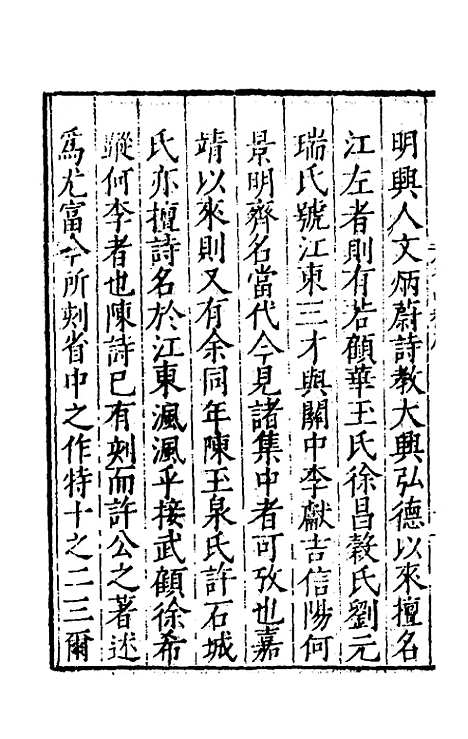 明興人文炳蔚詩教大興弘德以來擅名
江左者則有若顧華玉氏徐昌穀氏劉元
瑞氏號江東三才與關中李獻吉信陽何
景明齊名當代今見諸集中者可攷也嘉
靖以來則又有余同年陳玉泉氏許石城
氏亦擅詩名於江東渢渢乎接武顧徐希
蹤何李者也陳詩已有刻而許公之著述
爲尤富今所刻省中之作特十之二三爾